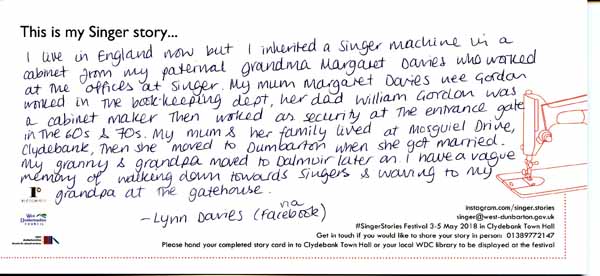 This is my Singer story...
I live in England now but I inherited a Singer machine in a
cabinet from my paternal grandma Margaret Davies who worked
at the offices at Singer. My mum Margaret Davies nee Gordon
worked in the book-keeping dept, her dad William Gordon was
a cabinet maker then worked as security at the entrance gate
in the 60s & 70s. My mum & her family lived at Mosguiel Drive,
Clydebank, then she moved to Dumbarton when she got married.
My granny & grandpa moved to Dalmuir later on. I have a vague
memory of walking down towards Singers & waving to my
grandpa at the gatehouse.
- Lynn Davies (via Facebook)
instagram.com/singer.stories
singer@west-dunbarton.gov.uk
#SingerStories Festival 3-5 May 2018 in Clydebank Town Hall
Get in touch if you would like to share your story in person: 01389772147
Please hand your completed story card in to Clydebank Town Hall or your local WDC library to be displayed at the festival